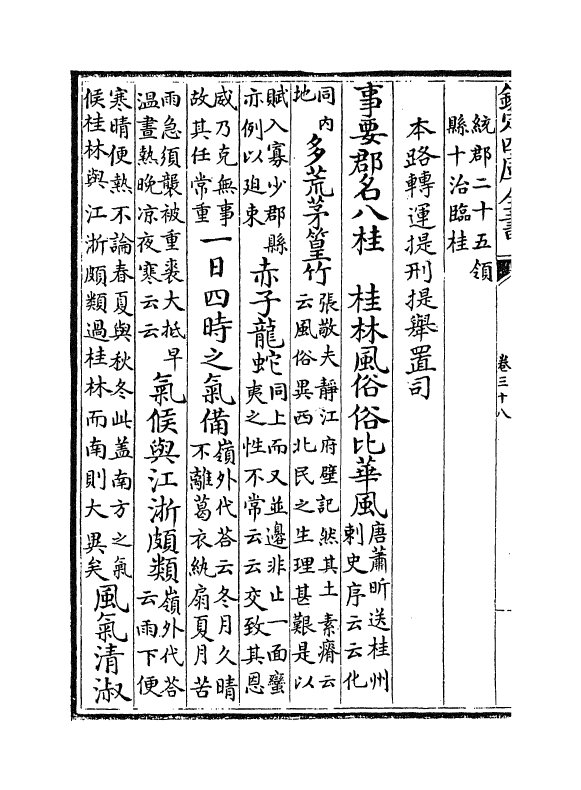 欽定四庫全書
卷三十八
統郡二十五領
縣十治臨桂
本路轉運提刑提舉置司
事要郡名八桂 桂林風俗俗比華風唐蕭昕送桂州刺史序云云化
同内地多荒茅篁竹張敬夫靜江府壁記然其土素瘠云云風俗異西北民之生理甚艱是以
賦入寡少郡縣亦例以廹束赤子龍蛇同上而又並邊非止一面蠻夷之性不常云云交致其恩
威乃克無事故其任常重一日四時之氣備嶺外代荅云冬月久晴不離葛衣紈扇夏月苦
雨急須襲被重裘大抵早温晝熱晚凉夜寒云云氣候與江浙頗類嶺外代荅云雨下便
寒晴便熱不論春夏與秋冬此盖南方之氣候桂林與江浙頗類過桂林而南則大異矣風氣清淑